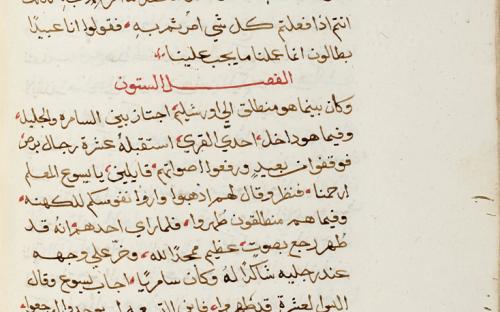 انتم اذا فعلتم كل شي امرتم به فقولوا انا عبيدًا
بطالون انما عملنا ما يجب علينا
الفصل الستون
وكان بينما هو منطلق الي اورشليم اجتاز بين السامره والجليل
وفيما هو داخل احدي القري استقبله عشرة رجال برص
فوقفوا من بعيد ورفعوا اصواتهم قايلين يا يسوع المعلم
ارحمنا فنظر وقال لهم اذهبوا واروا نفوسكم للكهنه
وفيما هم منطلقون طهروا فلما راي احدهم انه قد
طهر رجع بصوت عظيم ممجدًا لله وخر علي وجهه
عند رجليه شاكرًا له وكان سامريًا اجاب يسوع وقال
اليس العشرة قد طهروا فاين التسعه لم يوجدوا ليرجعوا